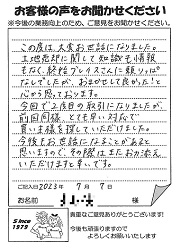 お客様の声をお聞かせください
※今後の業務向上のため、ご意見をお聞かせください。
この度は、大変お世話になりました。
土地売却に関して知識も情報
もなく、終始プレイスさんに頼りっぱ
なしでしたが、おまかせして良かった!と
心から思っております。
今回で2度目の取引になりましたが、
前回同様、とても早い対応で
買い主様を探していただけました。
今後もお世話になることがあると
思いますので、その際はまたお力添え
いただけますと幸いです。
ご記入日 2023年 7月 7日
お名前 様
Since
1979
貴重なご意見ありがとうございます!
今後も頑張りますので
よろしくお願いいたします